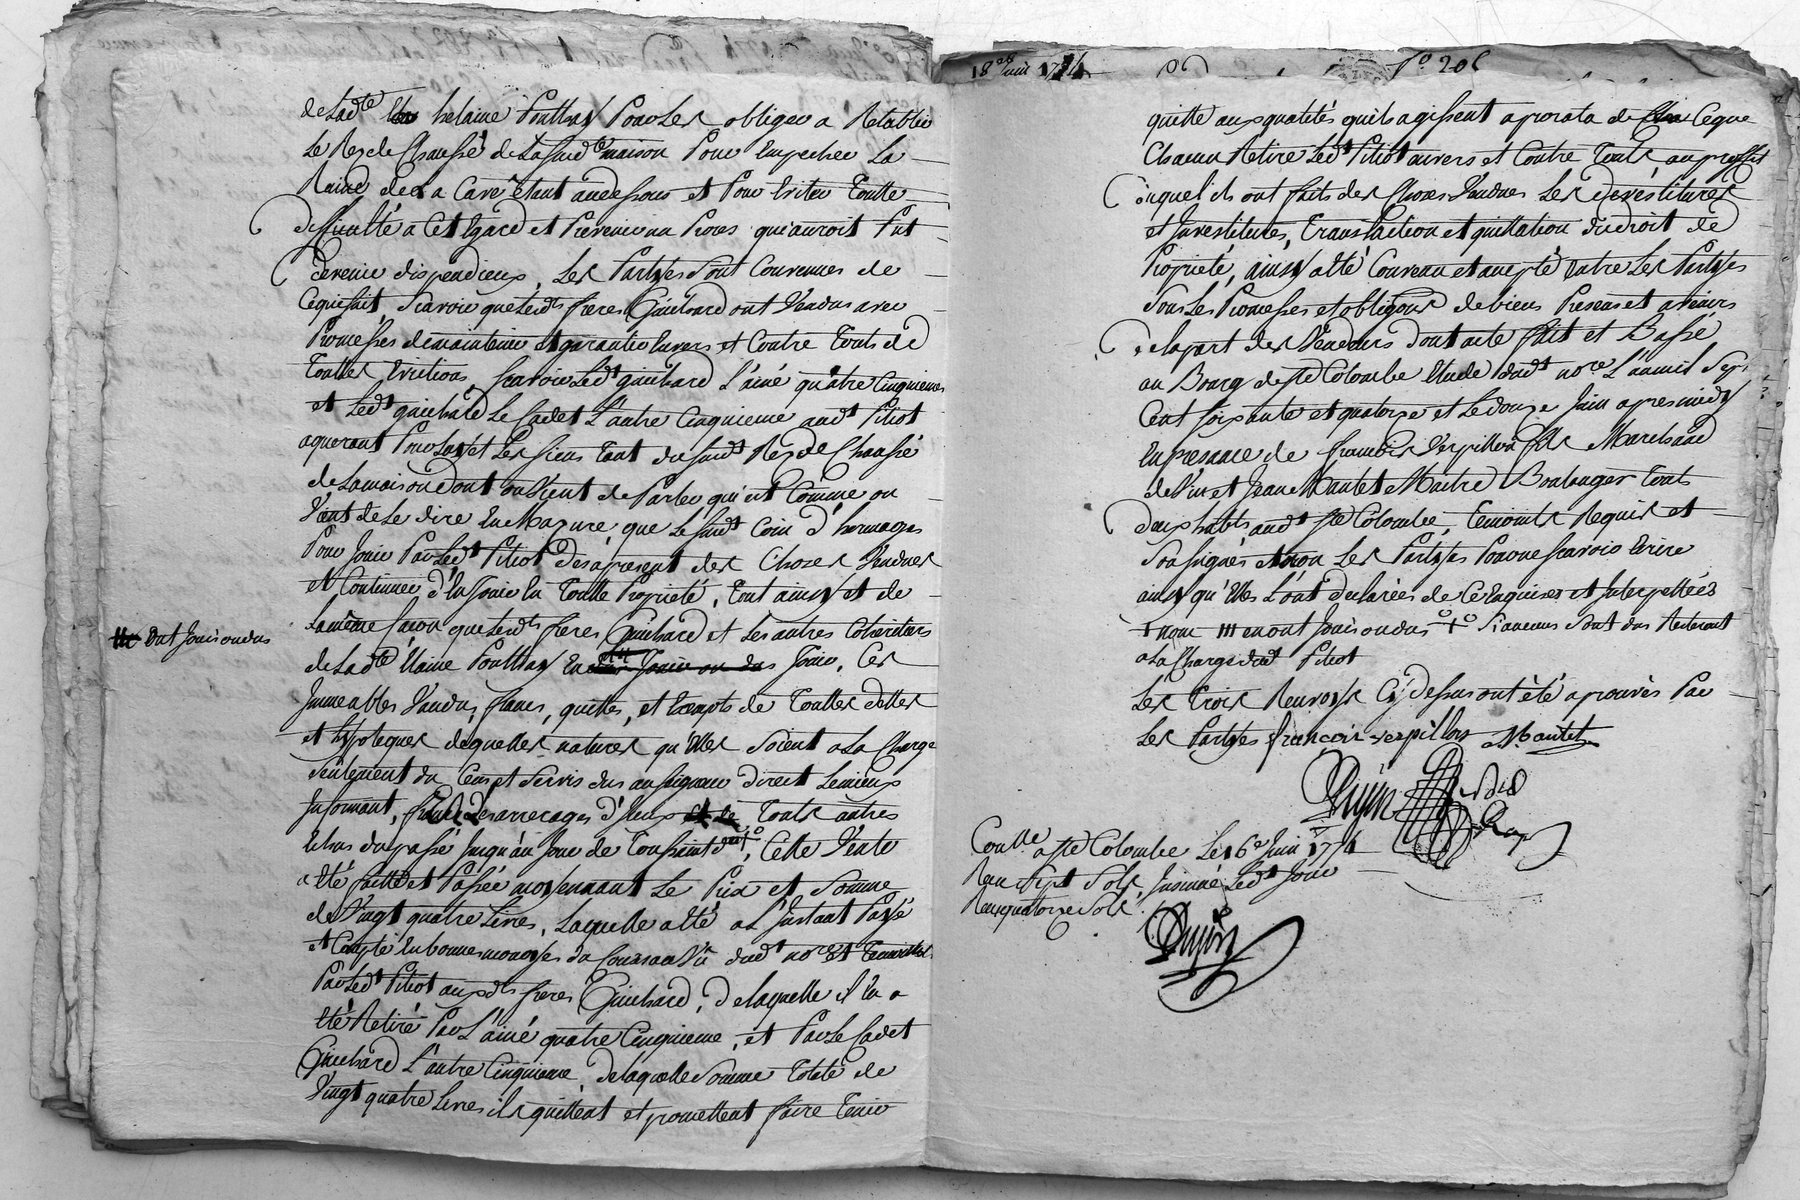 de Lad.te helaine Poulhay Pour Les obliger a Retablir
Le Rez de Chaussé de La susd.te maison Pour Empecher La
Ruine de La Cave etant au dessous et Pour Eviter Toutte
difficulté a Cet Egard et Prevenir un Proces qui auroit Put
devenir dispendieux, Les Partyes Sont Convenues de
Ce qui suit, Scavoir que Lesd.ts freres Guichard ont Vendus avec
Promesses de maintenir et garantir Envers et Contre Touts de
Touttes Evictions, Scavoir Led.t guichard L'ainé quatre Cinquiemes
et Led.t guichard Le Cadet L'autre Cinquieme aud.t Pitiot
aquerant Pour Luy et Les siens Tout du susd.t Rez de Chaussé
de La maison dont on Vient de Parler, qu'est Comme on
Vient de Le dire En Mazure, que Le susd.t Coin d'hermages
Pour Jouir Par Led.t Pitiot des a present des Choses Vendues
et Continuer d'En Jouir En Toutte Proprieté, Tout ainsy et de
La même facon que Lesd.ts freres Guichard et Les autres Coheritiers
Ont Joui ou dus
de Lad.te Elaine Poulhay Jouir, Ces
Immeubles Vendus, francs, quittes, et Exempts de Touttes dettes
et hypoteques de quelles natures qu'Elles Soient a La Charge
Seulement du Cens et Servis dus au Seigneur direct Le mieux
Informant, des arrerages d'Iceux Touts autres
Echus du passé Jusqu'au Jour de Toussaint Cette Vente
a Eté faitte et Passée moyennant Le Prix et Somme
de Vingt quatre Livres, Laquelle a Eté a L'Instant Payé
et Compté En bonnes monoyes du Cours au Vu dud.t no.re Et Temoins
Par Led.t Pitiot aux d.ts freres Guichard, de laquelle il En a
Eté Retiré Par L'ainé quatre Cinquieme, et Par Le Cadet
Guichard L'autre Cinquieme, de laquelle Somme Totale de
Vingt quatre Livres ils quittent et promettent faire Tenir
18 Juin 1774
f.o 206
quitte aux qualités qu'ils agissent a prorata de Ce que
Chacun Retire Led.t Pitiot envers et Contre Touts au proffit
duquel ils ont faits des Choses Vendues Les devestitures
et Investitures, Translaction et quittation du droit de
Proprieté, ainsy a Eté Convenu et accepté Entre Les Partyes
Sous Les Promesses et obligons de biens Presens et avenirs
de La part des Vendeurs dont acte fait et Passé
au Bourg de Ste Colombe Etude dud.t no.re L'an mil Sept
Cent Soixante et quatorze et Le douze Juin apres midy
En presance de francois Verpillon fils Marchand
de Vin et Jean Mantet Maitre Boulanger Touts
deux habts aud.t Ste Colombe, Temoints Requis et
Soussignés et non Les Partyes Pour ne Scavoir Ecrire
ainsy qu'Elles L'ont declarées de Ce Enquises et Interpellées
en ont Joui ou dus Si aucuns Sont dus Resteront
a La Charge dud.t Pitiot
Les Trois Renvoys Cy dessus ont été aprouvés Par
Les Partyes francois verpillon Mantet
Dujin
Coullé a Ste Colombe Le 16e Juin 1774
Reçu Sept Sols, Insinué Led.t Jour
Reçu quatorze Sols
Dujin